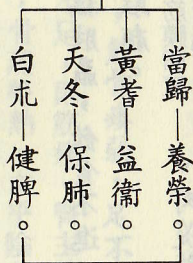 當歸 養榮。
黃耆 益衞。
天冬 保肺。
白朮 健脾。